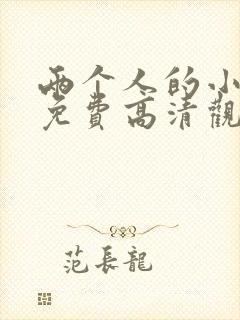 两个人的小
免費高清觀
范長龍